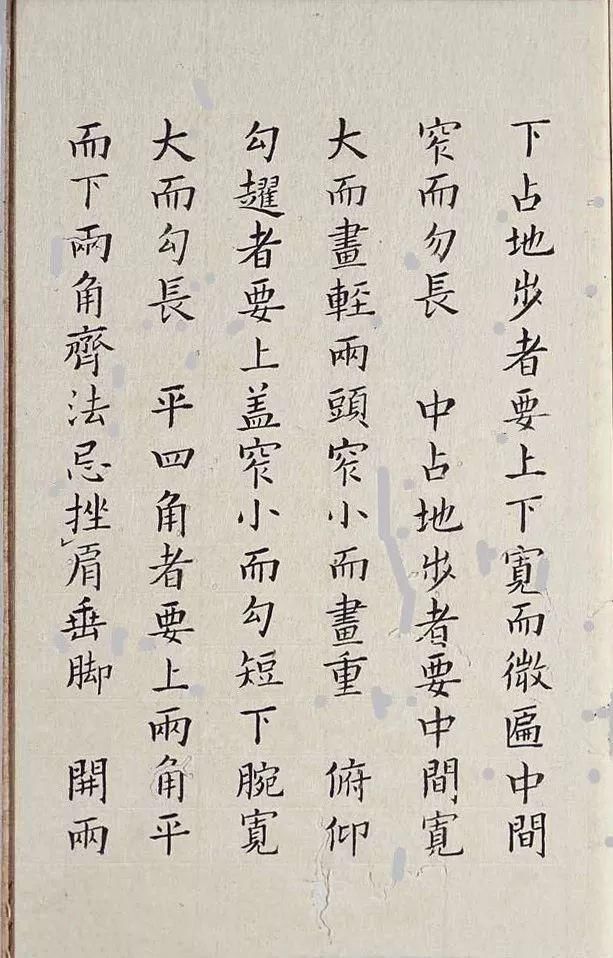 下占地步者要上下寬而微匾中間
窄而勿長　中占地步者要中間寬
大而畫輕兩頭窄小而畫重　俯仰
勾趯者要上盖窄小而勾短下腕寬
大而勾長　平四角者要上兩角平
而下兩角齊法忌挫肩垂脚　開兩